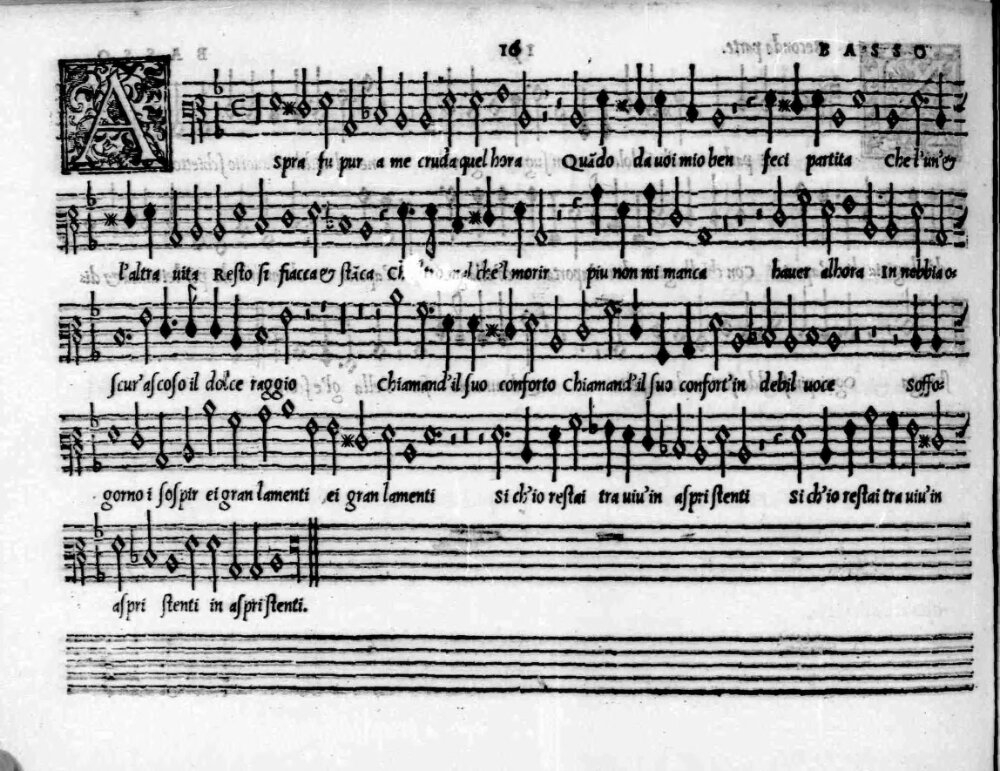 16 BASSO
ASpra fu pur a me cruda quel hora Quãdo da uoi mio ben feci partita Che l'un' &
l'altra uita Resto sì fiacca & stãca che'l morir piu non mi manca hauer alhora In nebbia o-
scur' ascoso il dolce raggio Chiamand'il suo conforto Chiamand'il suo confort'in debil uoce Soffo-
gorno i sospir ei gran lamenti ei gran lamenti Si ch'io restai tra uiu'in aspri stenti Si ch'io restai tra uiu'in
aspri stenti in aspri stenti.